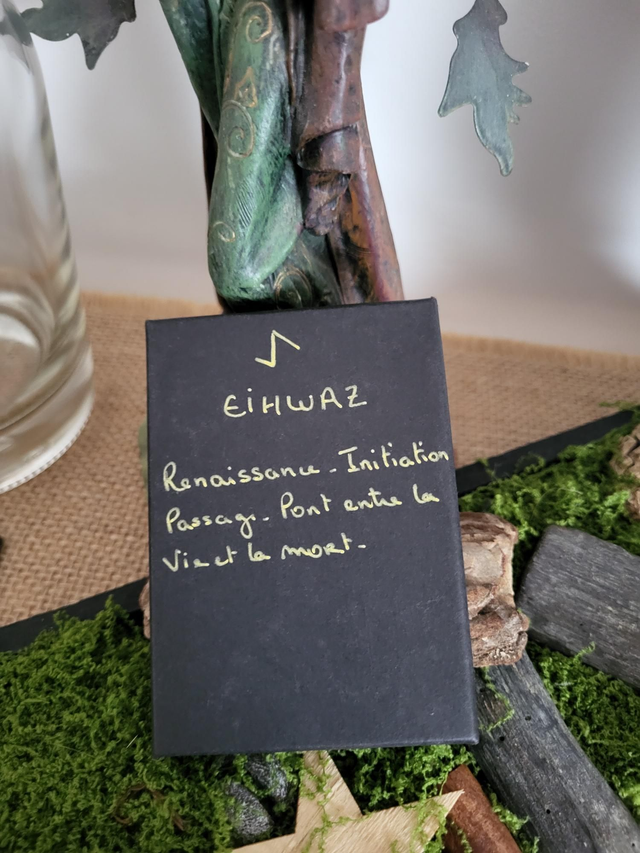 EiHWAZ
Renaissance - Initiation
Passage - Pont entre la
Vie et la mort -